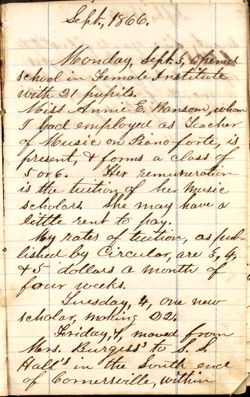 Sept, 1866.
Monday, Sept. 3, opened
school in Female Institute
with 21 pupils.
Miss Annie E. Ransom, whom
I had employed as Teacher
of Music on Piano forte, is
present, & forms a class of
5 or 6. Her remuneration
is the tuition of her Music
scholars. She may have a
little rent to pay.
My rates of tuition, as pub-
lished by Circular, are 3, 4,
& 5 dollars a month of
four weeks.
Tuesday, 4, one new
scholar, making 22.
Friday, 7, moved from
Mrs. Burgess' to S. S.
Hall's in the South end
of Cornersville, within